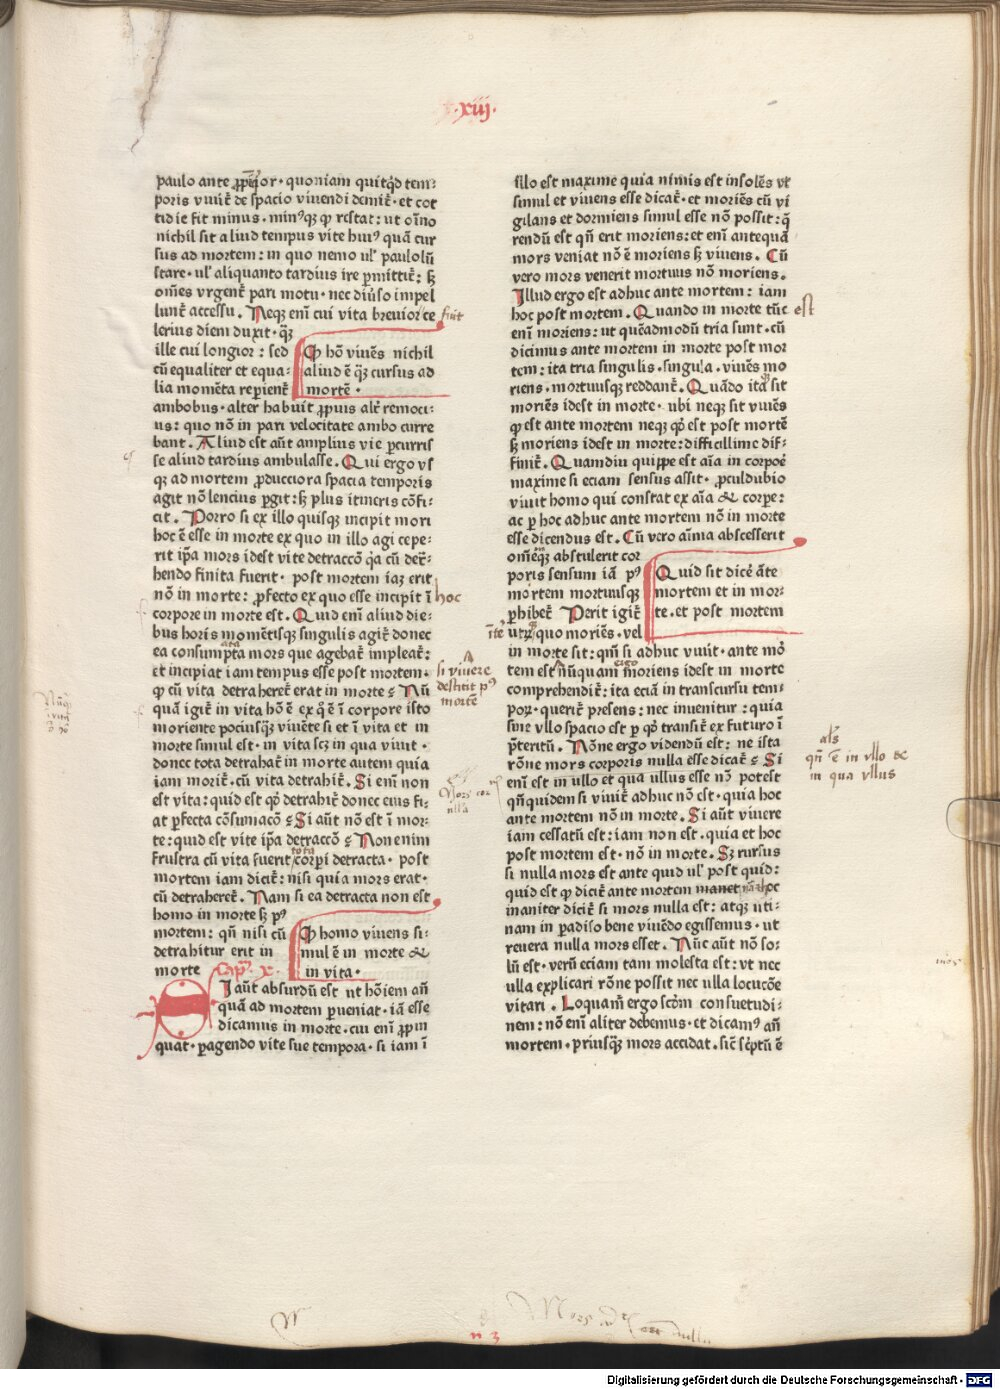 ·xiij·
paulo ante ꝓpīq̄or · quoniam quitqͥd tem⸗
poris viuit̄ de spacio viuendi demit̄ · et cot
tidie fit minus · minꝰqꝫ ꝙ restat : ut oīno
nichil sit aliud tempus vite huiꝰ quā cur
sus ad mortem : in quo nemo ul' paululū
stare · ul' aliquanto tardius ire ꝑmittit̄ : sꝫ
om̄es vrgent̄ pari motu · nec diũso impel
lunt̄ accessu . Neqꝫ enī cui vita breuior
fuit
lerius diem duxit · qꝫ̄
ille cui longior : sed
cū equaliter et equa⸗
lia momēta repient̄
ꝙ hō viuēs nichil
aliud ē qꝫ̄ cursus ad
mortē ·
ambobus · alter habuit ꝓpius alt̄ remoci⸗
us : quo nō in pari velocitate ambo curre
bant . Aliud est aūt amplius vie ꝑcurris
se aliud tardius ambulasse . Qui ergo vs
qꝫ ad mortem ꝓducciora spacia temporis
agit nō lencius ꝑgit : sꝫ plus itineris cōfi⸗
cit . Porro si ex illo quisqꝫ incipit mori
hoc ē esse in morte ex quo in illo agi cepe⸗
rit ip̄a mors idest vite detraccō qͥa cū det̄⸗
hendo finita fuerit · post mortem iaꝫ erit
nō in morte : ꝓfecto ex quo esse incipit ī
hoc
corpore in morte est . Quid enī aliud die⸗
bus horis momētisqꝫ singulis agit̄ donec
ea consumpta mors que agebat̄ impleat̄ :
et incipiat iam tempus esse post mortem ·
si viuere
destitit pꝰ
mortē
ꝙ cū vita detraheret̄ erat in morte ؟ Nū
quā igit̄ in vita hō ē ex qͦ ē ī corpore isto
moriente pociusqꝫ̄ viuēte si et ī vita et in
morte simul est · in vita scꝫ in qua viuit ·
donec tota detrahat̄ in morte autem quia
iam morit̄ · cū vita detrahit̄ . Si enī non
est vita : quid est qͦd detrahit̄ donec eius fi⸗
at ꝑfecta cōsumacō ؟ Si aūt nō est ī mor⸗
te : quid est vite ip̄a detraccō ؟ Non enim
tota
frustra cū vita fuerit corpi detracta · post
mortem iam dicit̄ : nisi quia mors erat ·
cū detraheret̄ . Nam si ea detracta non est
homo in morte sꝫ pꝰ
mortem : qn̄ nisi cū
detrahitur erit in
morte
ꝙ homo viuens si⸗
mul ē in morte &
in vita ·
Cap̄ · x ·
I aūt absurdū est ut hōiem añ
quā ad mortem ꝑueniat · iā esse
dicamus in morte . cui enī ꝓpin
quat · ꝑagendo vite sue tempora · si iam ī
illo est maxime quia nimis est insolēs vt
simul et viuens esse dicat̄ · et moriēs cū vi
gilans et dormiens simul esse nō possit : q̄
rendū est qn̄ erit moriens : et enī antequā
mors veniat nō ē moriens sꝫ viuens . Cū
vero mors venerit mortuus nō moriens .
Illud ergo est adhuc ante mortem : iam
hoc post mortem . Quando in morte tūc
est
enī moriens : ut quēadmodū tria sunt · cū
dicimus ante mortem in morte post mor
tem : ita tria singulis · singula . viuēs mo
riens . mortuusqꝫ reddant̄ . Quādo itaqꝫ sit
moriēs idest in morte · ubi neqꝫ sit viuēs
ꝙ est ante mortem neqꝫ qͦd est post mortē
sꝫ moriens idest in morte : difficillime dif⸗
finit̄ . Quamdiu quippe est aīa in corpoꝛe
maxime si eciam sensus assit · ꝓculdubio
viuit homo qui constat ex aīa & corpoꝛe :
ac ꝑ hoc adhuc ante mortem nō in morte
esse dicendus est . Cū vero aīma abscesserit
om̄ēqꝫ abstulerit cor
poris sensum iā pꝰ
mortem mortuusqꝫ
ꝑhibet̄ Perit igit̄
Quid sit dicē āte
mortem et in mor⸗
te . et post mortem
utrūqꝫ quo moriēs · vel
in morte sit : qm̄ si adhuc viuit · ante mō
tem est nūquam moriens idest in morte
ergo
comprehendit̄ : ita eciā in transcursu tem⸗
poꝝ · querit̄ presens : nec inuenitur : quia
sine vllo spacio est ꝑ qͦd transit̄ ex futuro ī
p̄teritū . Nōne ergo videndū est : ne ista
rōne mors corporis nulla esse dicat̄ ؟ Si
enī est in ullo et qua ullus esse nō potest
als
qn̄ ē in vllo &
in qua vllus
qn̄quidem si viuit̄ adhuc nō est · quia hoc
ante mortem nō in morte . Si aūt viuere
iam cessatū est : iam non est · quia et hoc
post mortem est · nō in morte . Sꝫ rursus
si nulla mors est ante quid ul' post quid :
quid est ꝙ dicit̄ ante mortem manet hoc
inaniter dicit̄ si mors nulla est : atqꝫ uti⸗
nam in padiso bene viuēdo egissemus · ut
reuera nulla mors esset . Nūc aūt nō so⸗
lū est · verū eciam tam molesta est : vt nec
ulla explicari rōne possit nec ulla locucōe
vitari . Loquam̄ ergo scḋm consuetudi⸗
nem : nō enī aliter debemus · et dicamꝰ añ
mortem · priusqꝫ̄ mors accidat . sic̄ sc̄ptū ē
Digitalisierung gefördert durch die Deutsche Forschungsgemeinschaft - DFG